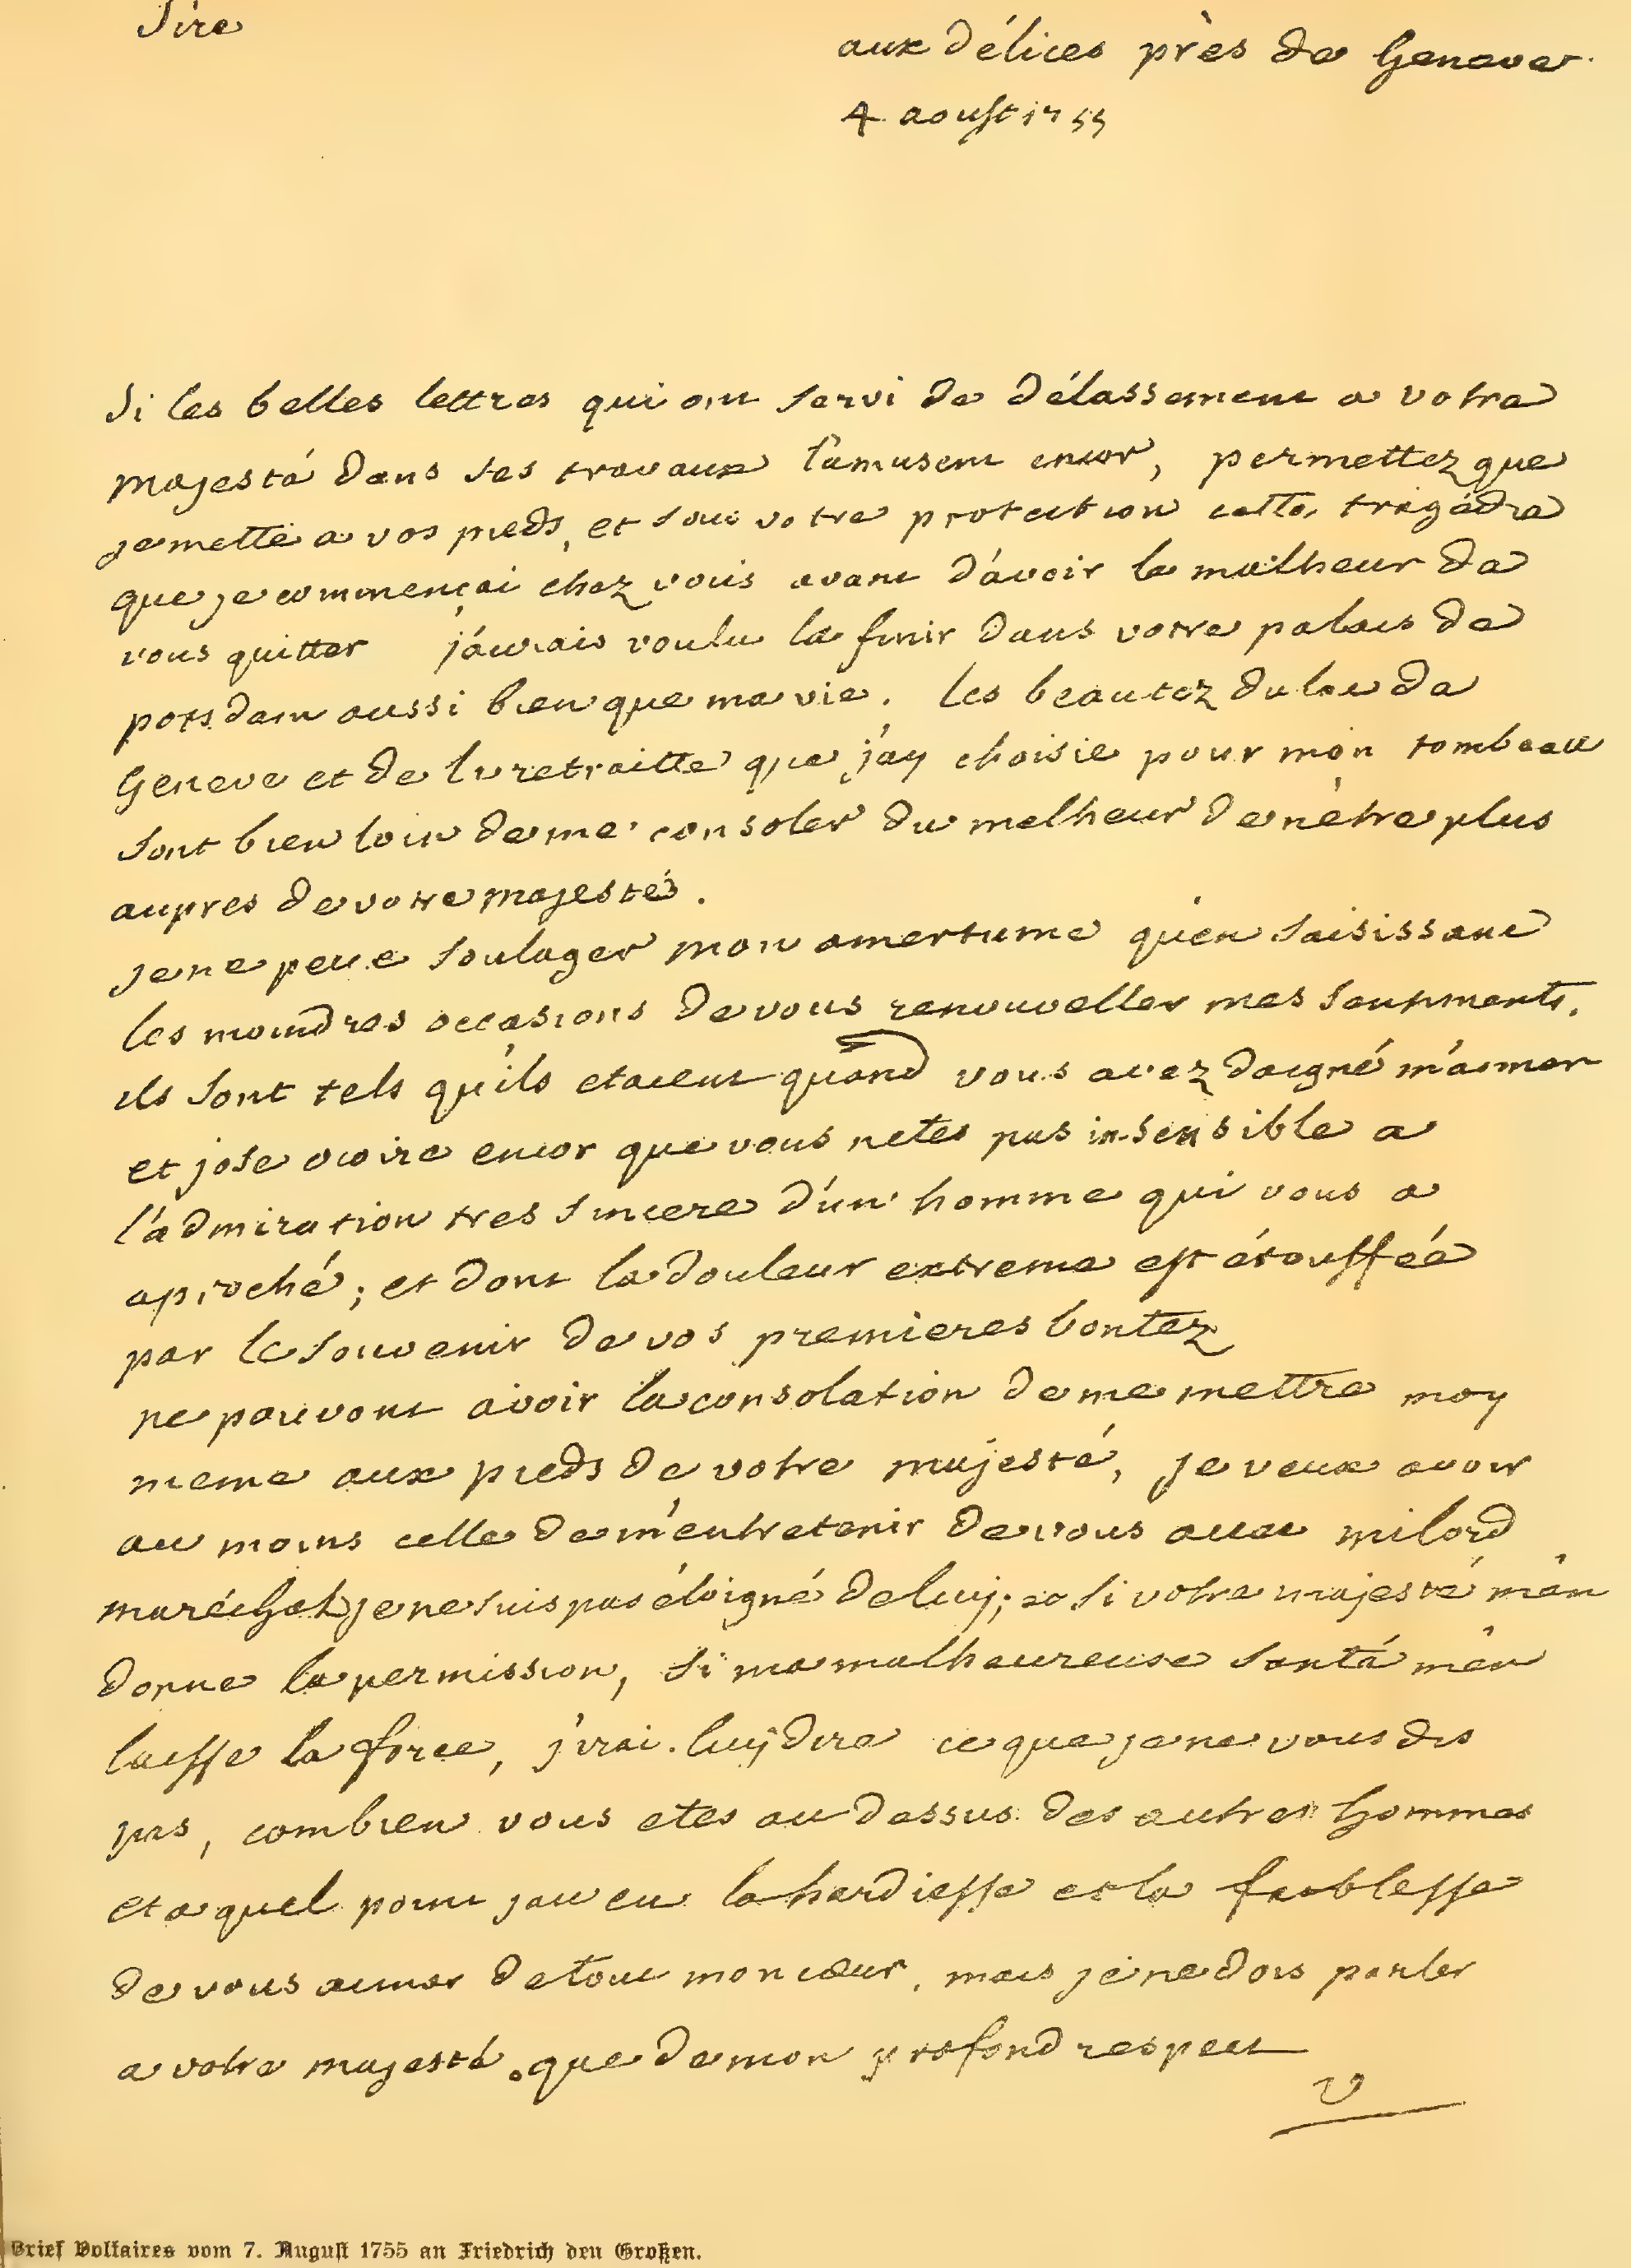 Sire
aux délices près de Geneve.
4 aoust 1755
Si les belles lettres qui ont servi de délassement a votre
majesté dans ses travaux l'amusent encor, permettez que
je mette a vos pieds, et sous votre protection cette tragédie
que je commençai chez vous avant d'avoir le malheur de
vous quitter j'aurais voulu la finir dans votre palais de
potsdam aussi bien que ma vie. les beautez du lac de
Geneve et de la retraitte que j'ay choisie pour mon tombeau
sont bien loin de me consoler du malheur de n'etre plus
aupres de votre majesté.
je ne peux soulager mon amertume qu'en saisissant
les moindres occasions de vous renouveller mes sentiments.
ils sont tels qu'ils etaient quand vous avez daigné m'aimer
et jose croire encor que vous netes pas insensible a
l'admiration tres sincere d'un homme qui vous a
aproché; et dont la douleur extreme est étouffée
par le souvenir de vos premieres bontez
ne pouvant avoir la consolation de me mettre moy
meme aux pieds de votre majesté, je veux avoir
au moins celle de m'entretenir de vous avec milord
maréchal je ne suis pas éloigné de luy; et si votre majesté m'en
donne la permission, si ma malheureuse santé m'en
laisse la force, j'irai luy dire ce que je ne vous dis
pas, combien vous etes au dessus des autres hommes
et a quel point jai eu la hardiesse et la faiblesse
de vous aimer de tout mon cœur, mais je ne dois parler
a votre majesté que de mon profond respect
V
Brief Voltaires vom 7. August 1755 an Friedrich den Großen.